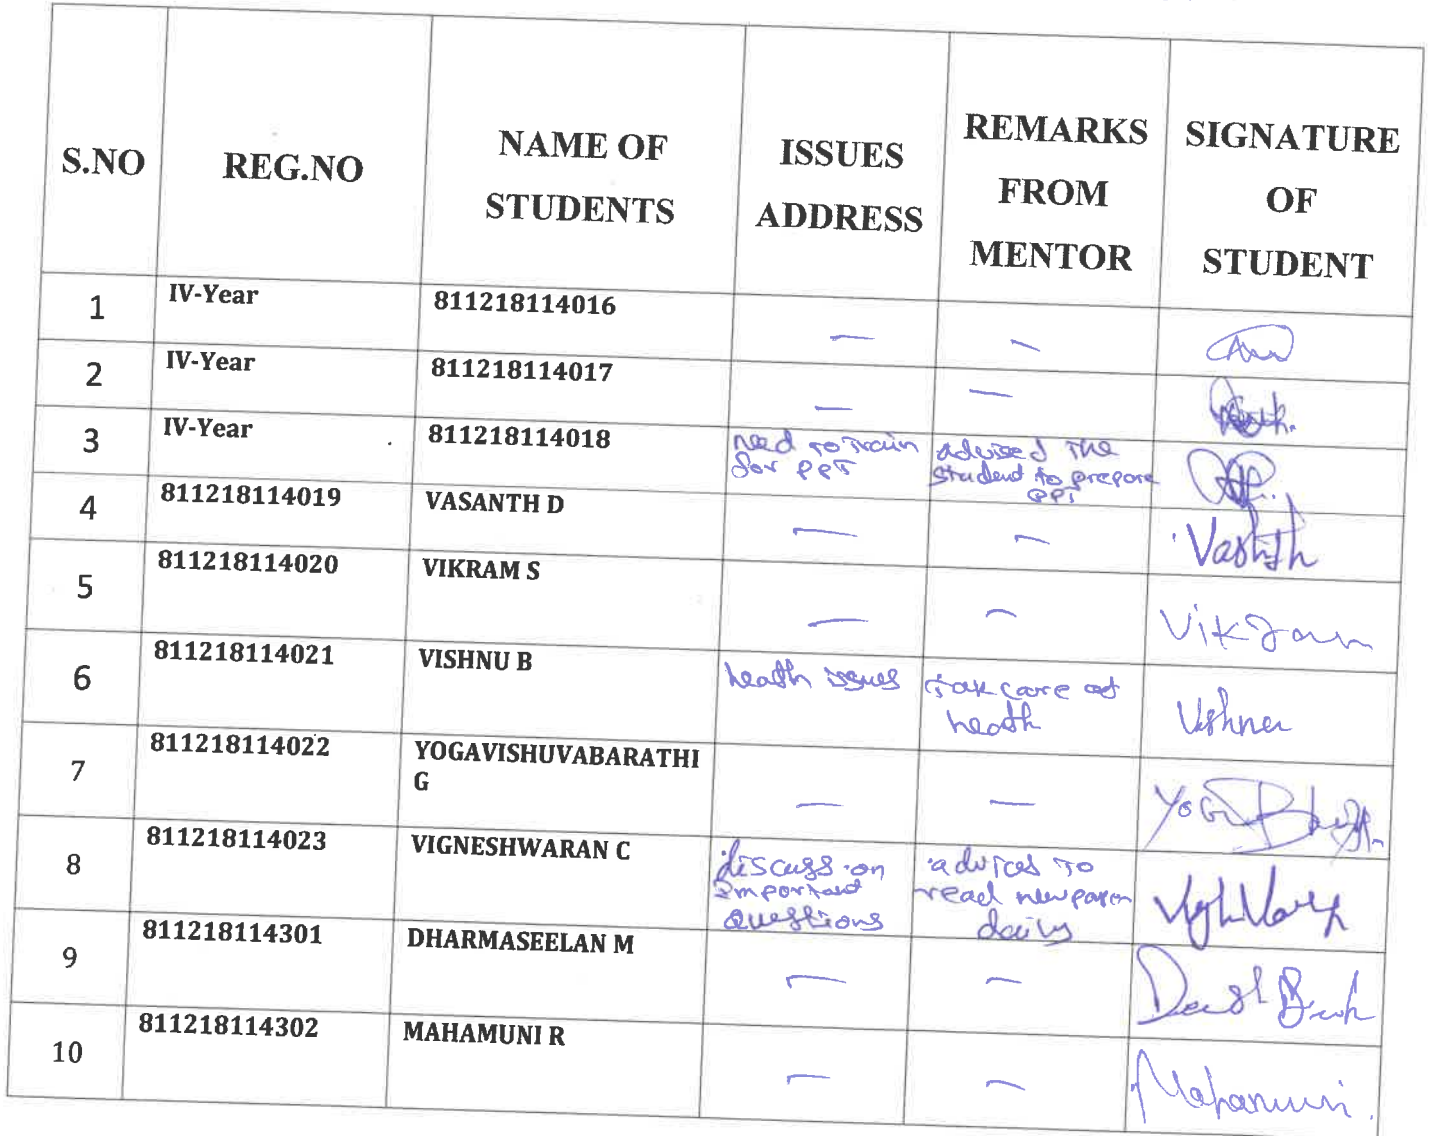 S.NO REG.NO NAME OF STUDENTS ISSUES ADDRESS REMARKS FROM MENTOR SIGNATURE OF STUDENT
1 IV-Year 811218114016 — —
2 IV-Year 811218114017 — —
3 IV-Year 811218114018 need to train for PPT advised the student to prepare PPT
4 811218114019 VASANTH D — — Vasnth
5 811218114020 VIKRAM S — — Vikram
6 811218114021 VISHNU B health issues Tak care of heath Vishnu
7 811218114022 YOGAVISHUVABARATHI G — —
8 811218114023 VIGNESHWARAN C discuss on Important questions advices to read newpaper daily
9 811218114301 DHARMASEELAN M — —
10 811218114302 MAHAMUNI R — — Mahamuni.